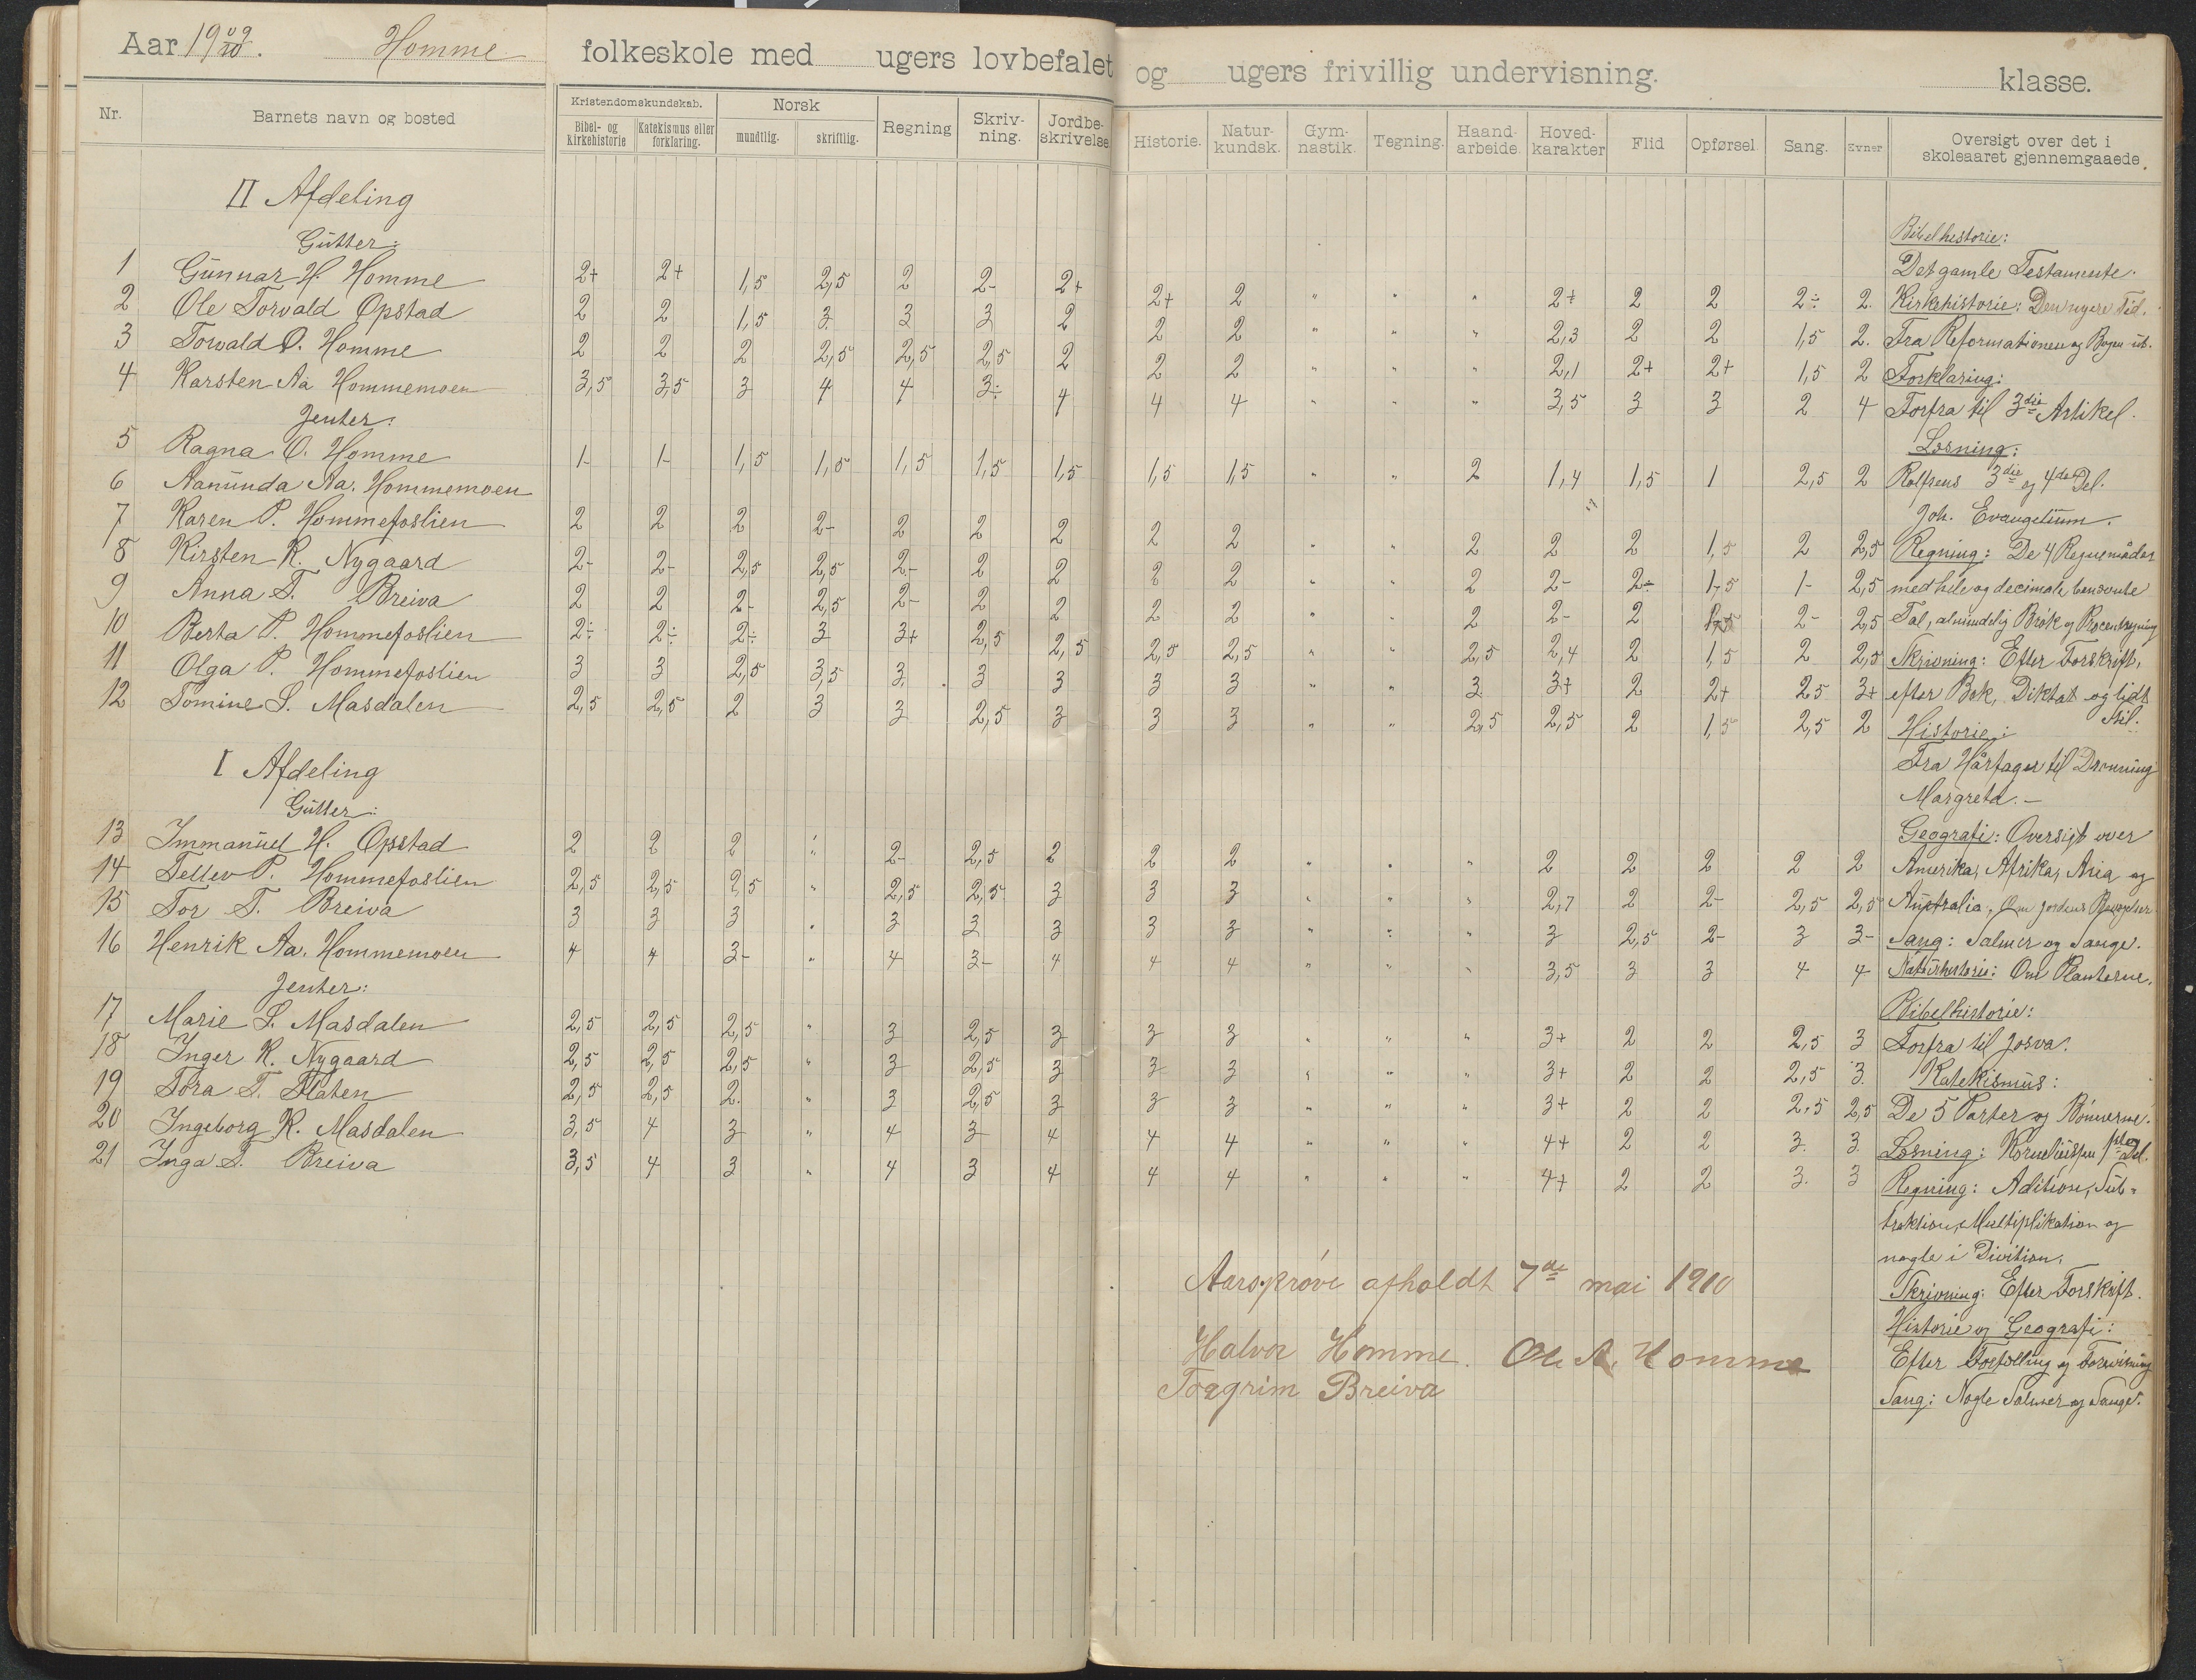 Aar 1909/10. Homme folkeskole med ugers lovbefalet og ugers frivillig undervisning. klasse.
Nr. Barnets navn og bosted Kristendomskundskab. Bibel- og kirkehistorie Katekismus eller forklaring. Norsk mundtlig. skriftlig. Regning Skrivning. Jordbeskrivelse Historie. Naturkundsk. Gymnastik. Tegning. Haandarbeide. Hovedkarakter Flid Opførsel Sang. Evner Oversigt over det i skoleaaret gjennemgaaede.
II Afdeling
Gutter:
1 Gunnar H. Homme 2+ 2+ 1,5 2,5 2 2- 2+ 2+ 2 " " " 2+ 2 2 2÷ 2.
2 Ole Torvald Opstad 2 2 1,5 3 3 3 2 2 2 " " " 2,3 2 2 1,5 2.
3 Torvald O. Homme 2 2 2 2,5 2,5 2,5 2 2 2 " " " 2,1 2+ 2+ 1,5 2
4 Karsten Aa Hommemoen 3,5 3,5 3 4 4 3÷ 4 4 4 " " " 3,5 3 3 2 4
Jenter:
5 Ragna O. Homme 1- 1- 1,5 1,5 1,5 1,5 1,5 1,5 1,5 " " 2 1,4 1,5 1 2,5 2
6 Aanunda Aa. Hommemoen
7 Karen P. Hommefoslien 2 2 2 2- 2 2 2 2 2 " " 2 2 2 1,5 2 2,5
8 Kirsten K. Nygaard 2- 2- 2,5 2,5 2- 2 2 2 2 " " 2 2- 2÷ 1,5 1- 2,5
9 Anna T. Breiva 2 2 2- 2,5 2- 2 2 2 2 " " 2 2- 2 1,5 2- 2,5
10 Berta P. Hommefoslien 2÷ 2÷ 2÷ 3 3+ 2,5 2,5 2,5 2,5 " " 2,5 2,4 2 1,5 2 2,5
11 Olga P. Hommefoslien 3 3 2,5 3,5 3 3 3 3 3 " " 3 3+ 2 2+ 2,5 3+
12 Tomine S. Masdalen 2,5 2,5 2 3 3 2,5 3 3 3 " " 2,5 2,5 2 1,5 2,5 2
I Afdeling
Gutter:
13 Immanuel H. Opstad 2 2 2 " 2- 2,5 2 2 2 " " " 2 2 2 2 2
14 Tellev P. Hommefoslien 2,5 2,5 2,5 " 2,5 2,5 3 3 3 " " " 2,7 2 2- 2,5 2,5
15 Tor T. Breiva 3 3 3 " 3 3 3 3 3 " " " 3 2,5 2- 3 3-
16 Henrik Aa. Hommemoen 4 4 3- " 4 3- 4 4 4 " " " 3,5 3 3 4 4
Jenter:
17 Marie S. Masdalen 2,5 2,5 2,5 " 3 2,5 3 3 3 " " " 3+ 2 2 2,5 3
18 Inger K. Nygaard 2,5 2,5 2,5 " 3 2,5 3 3 3 " " " 3+ 2 2 2,5 3.
19 Tora T. Flaten 2,5 2,5 2. " 3 2,5 3 3 3 " " " 3+ 2 2 2,5 2,5
20 Ingeborg K. Masdalen 3,5 4 3 " 4 3 4 4 4 " " " 4+ 2 2 3. 3.
21 Inga T. Breiva 3,5 4 3 " 4 3 4 4 4 " " " 4+ 2 2 3. 3
Bibelhistorie:
Det gamle Testamente.
Kirkehistorie: Den nyere Tid.
Fra Reformationen og Bogen ut.
Forklaring:
Forfra til 3die Artikel.
Læsning:
Rolfsens 3die og 4de Del.
Joh. Evangelium.
Regning: De 4 Regnemåder
med hele og decimale benævnte
Tal, almindelig Brøk og Procentregning
Skrivning: Efter Forskrift,
efter Bok, Diktat og lidt
Stil.
Historie:
Fra Hårfager til Dronning
Margreta.-
Geografi: Oversigt over
Amerika, Afrika, Asia og
Australia. Om Jordens
Sang: Salmer og Sange.
Naturhistorie: Om Planterne.
Bibelhistorie:
Forfra til Josva.
Katekismus:
De 5 Parter og Bønnerne.
Læsning: 1ste Del.
Regning: Adition, Sub-
traktion, Multiplikation og
nogle i Divition.
Skrivning: Efter Forskrift.
Historie og Geografi:
Efter Fortælling og Forevisning
Sang: Nogle Salmer og Sange.
Aarsprøve afholdt 7de mai 1910
Halvor Homme. Ole A. Homme
Torgrim Breiva